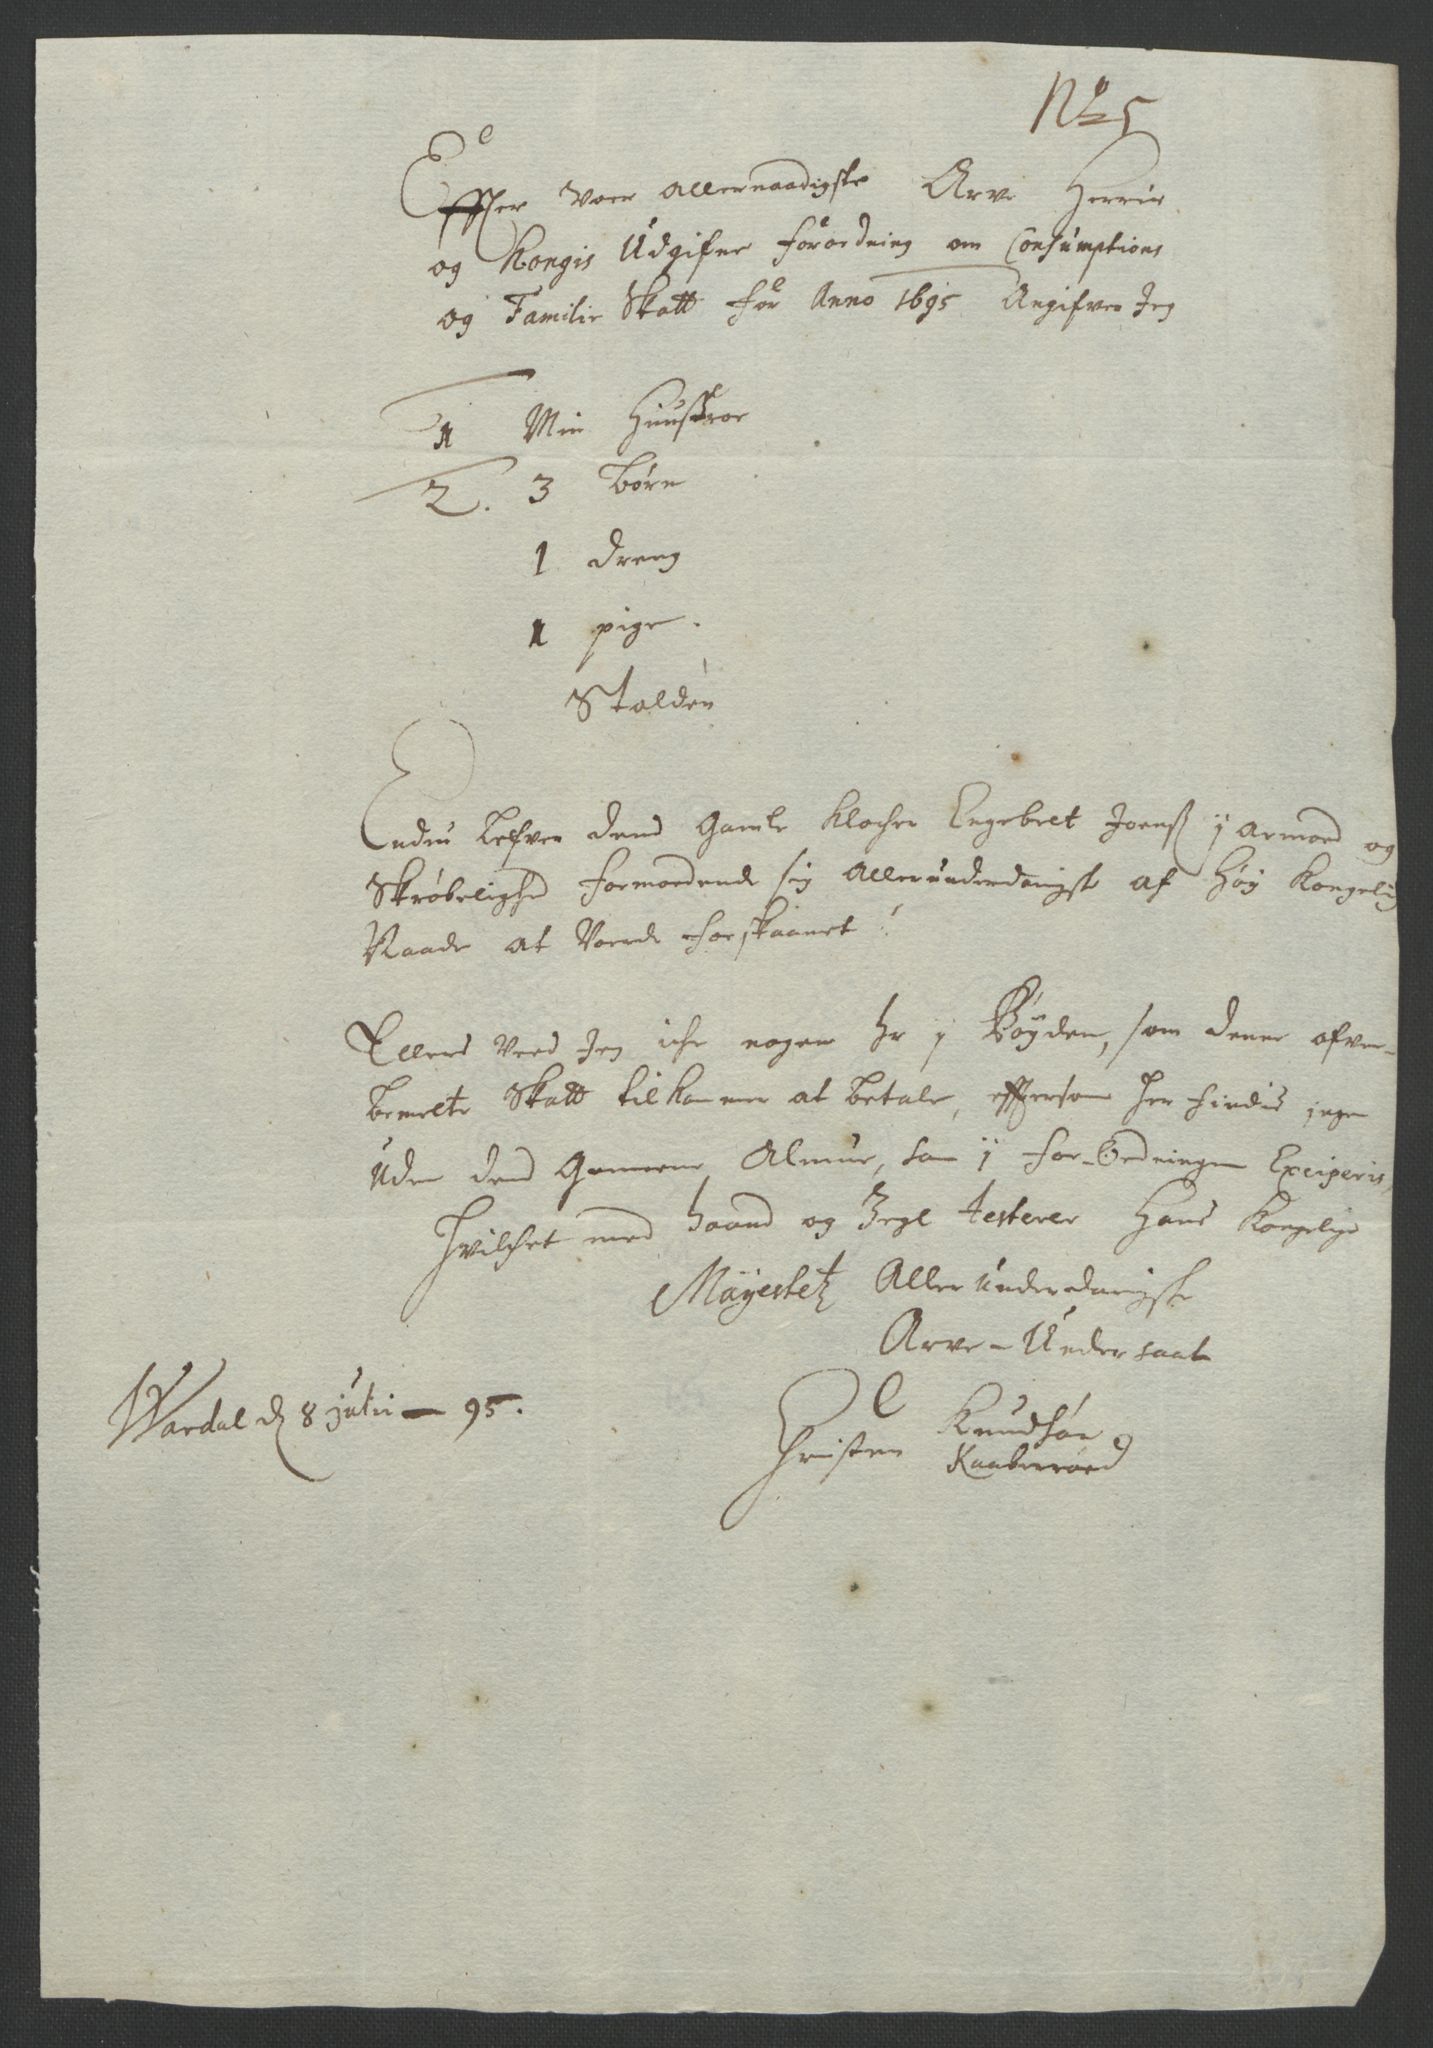 No 5
Effter Voer Allernaadigste Arve Herris
og Kongis Udgifne forordning om Consumptions
og Familie Skatt for Anno 1695 Angifver Jeg
1 Min Huustroe
2. 3 Børn
1 dreng
1 pige.
Stalden
Endnu lefver dend Gamle Klocher Engebret Joenß j Armoed og
Skrøbelighd formoedende sig Allerunderdanigst af Høy Kongelig
Naade at Vorde forskaanet!
Ellers veed Jeg iche nogen hr j Bøyden, som denne ofven-
bemelte Skatt tilkommer at betale, efftersom her findis ingen
Uden dend Gemeene Almue, som j for-Ordningen Exciperis,
Hvilchet med haand og Zegl testerer Hans Kongelige
Mayestetz Allerunderdanigste
Arve-Undersaat
Wardal d 8 julii - 95.
Christen Knudsøn
Kaaberøed